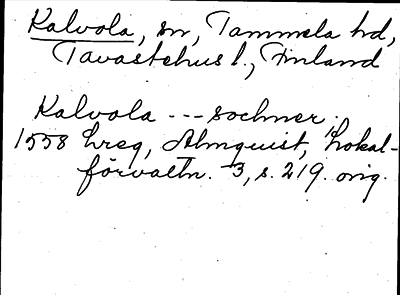 Kalvola, sn, Tammela hd,
Tavastehus l., Finland
Kalvola --- sochner.
1558 Lreg, Almquist, Lokal-
förvaltn. 3, s. 219. orig.